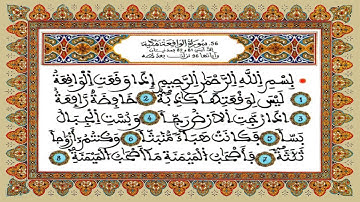 56 سورة الواقعة مكية
بِسْمِ اللَّهِ الرَّحْمَٰنِ الرَّحِيمِ إِذَا وَقَعَتِ الْوَاقِعَةُ
1 لَيْسَ لِوَقْعَتِهَا كَاذِبَةٌ 2 خَافِضَةٌ رَافِعَةٌ
3 إِذَا رُجَّتِ الْأَرْضُ رَجًّا 4 وَبُسَّتِ الْجِبَالُ
بَسًّا 5 فَكَانَتْ هَبَاءً مُنْبَثًّا 6 وَكُنْتُمْ أَزْوَاجًا
ثَلَاثَةً 7 فَأَصْحَابُ الْمَيْمَنَةِ مَا أَصْحَابُ الْمَيْمَنَةِ 8